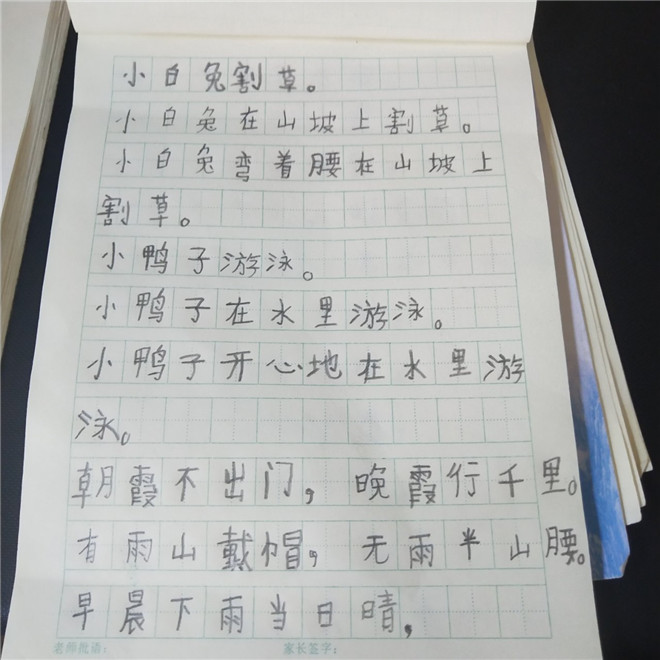 小白兔割草。
小白兔在山坡上割草。
小白兔弯着腰在山坡上
割草。
小鸭子游泳。
小鸭子在水里游泳。
小鸭子开心地在水里游
泳。
朝霞不出门，晚霞行千里。
有雨山戴帽，无雨半山腰。
早晨下雨当日晴，
老师批语： 家长签字：